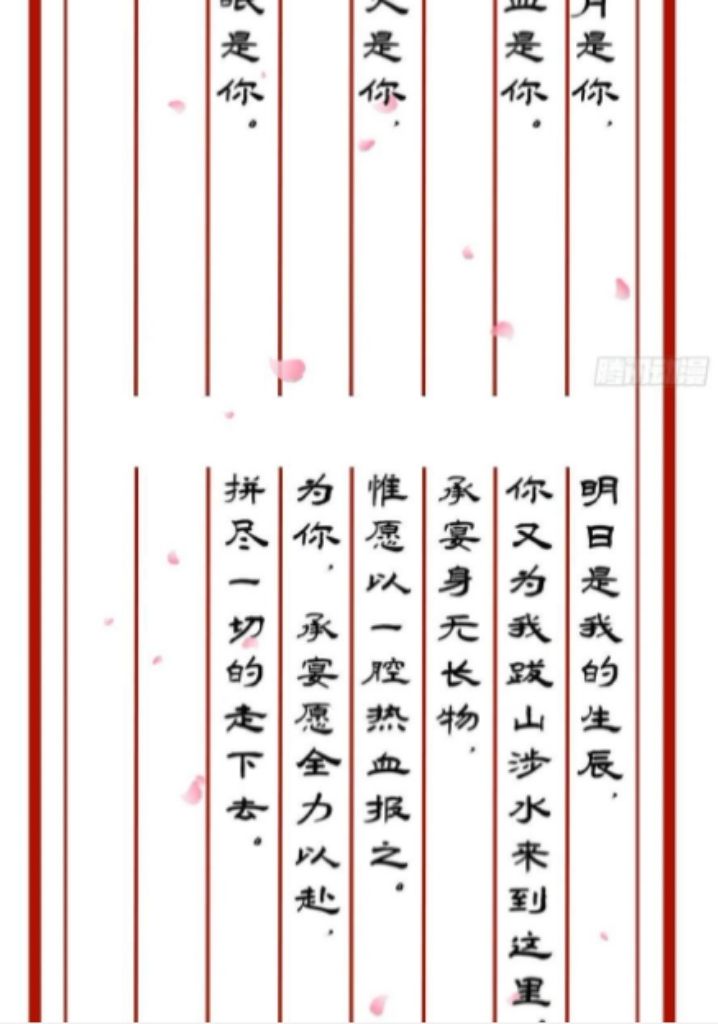 月是你，
血是你。
是你，
眼是你。
腾讯动漫
明日是我的生辰，
你又为我跋山涉水来到这里，
承宴身无长物，
惟愿以一腔热血报之。
为你，承宴愿全力以赴，
拼尽一切的走下去。